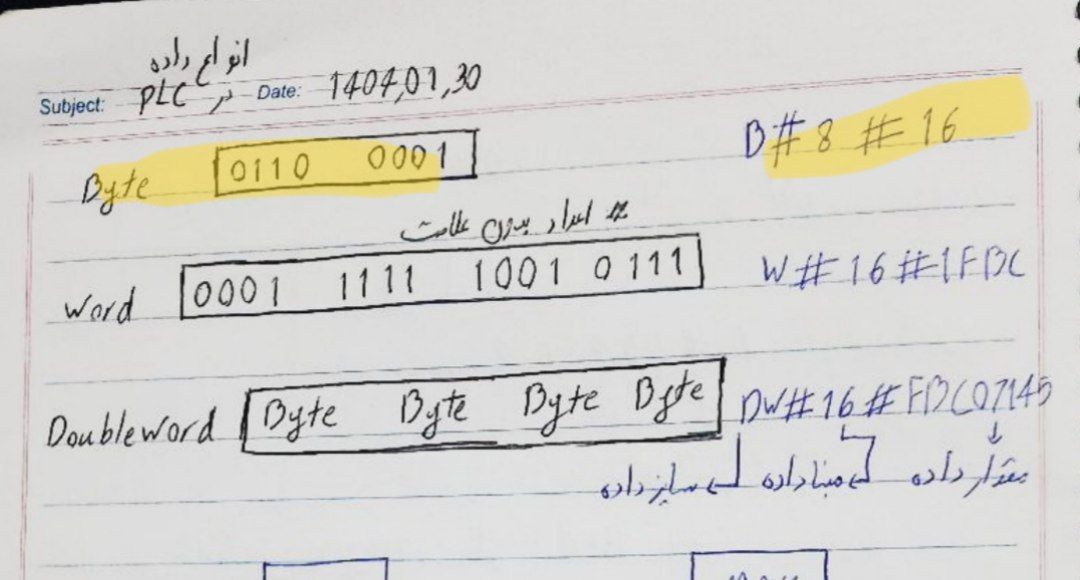 انواع داده
Subject: PLC در Date: 1404,01,30
Byte 0110 0001 B#8#16
اعداد بدون علامت
Word 0001 1111 1001 0111 W#16#1FBC
DoubleWord Byte Byte Byte Byte DW#16#FBC07145
سایز داده مبنا داده مقدار داده